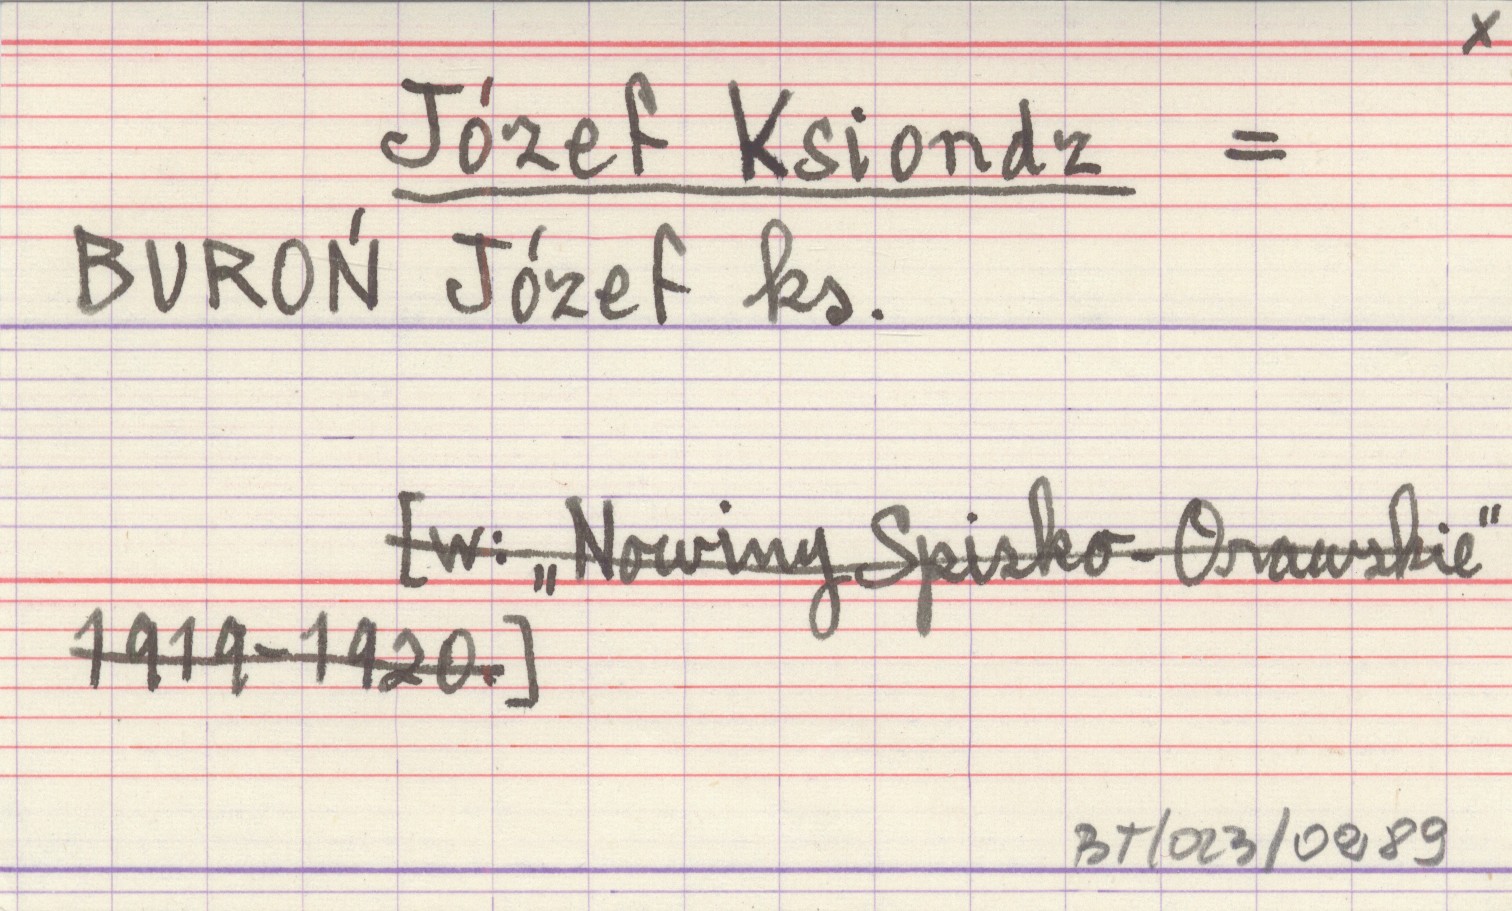 x
Józef Ksiondz =
BUROŃ Józef ks.
[w: „Nowiny Spisko-Orawskie"
1919-1920.]
BT/023/0289